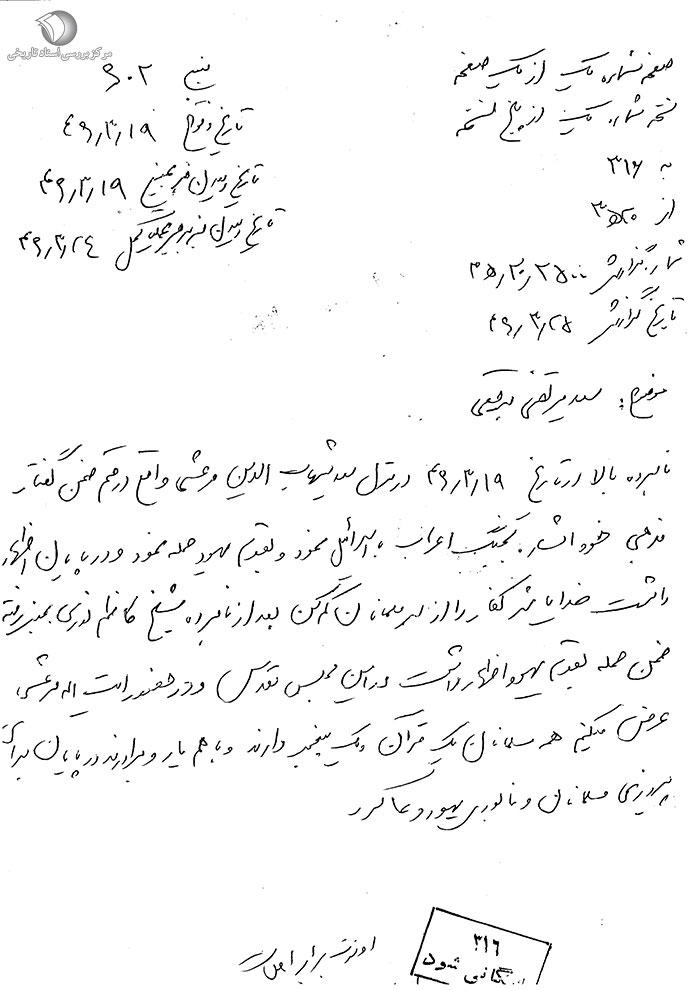 مرکز بررسی اسناد تاریخی
صفحه شماره یک از یک صفحه
نسخه شماره یک از پنج نسخه
به ۳۱۶
از
شماره گزارش
تاریخ گزارش ۴۹٫۳٫۲۵
منبع ۶۰۲
تاریخ وقوع ۴۹٫۳٫۱۹
تاریخ رسیدن خبر به منبع ۴۹٫۳٫۱۹
تاریخ رسیدن خبر به رهبر عملیات ۴۹٫۳٫۲۴
موضوع: سید مرتضی برقعی
نامبرده بالا در تاریخ ۴۹٫۳٫۱۹ در منزل سید شهاب الدین مرعشی واقع در قم ضمن گفتار
مذهبی خود اشاره بجنگ اعراب با اسرائیل نمود و بقوم یهود حمله نمود و در پایان اظهار
داشت خدایا شر کفار را از سر مسلمانان کم کن بعد از نامبرده شیخ کاظم بمنبر رفته
ضمن حمله بقوم یهود اظهار داشت در این مجلس مقدس و در حضور ایت اله مرعشی
عرض میکنم همه مسلمانان یک قرآن و یک پیغمبر دارند و با هم یار و برادرند در پایان برای
پیروزی مسلمانان و نابودی یهود دعا کرد
۳۱۶
بایگانی شود